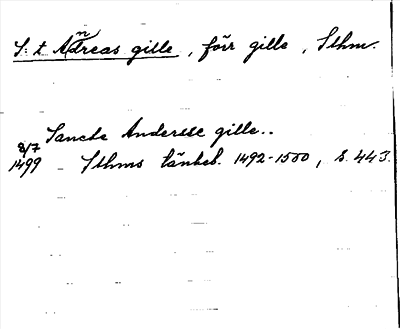 S:t Andreas gille, förr gille, Sthm.
Sancte Anderese gille..
8/7
1499 - Sthms tänkeb. 1492-1500, s. 443.